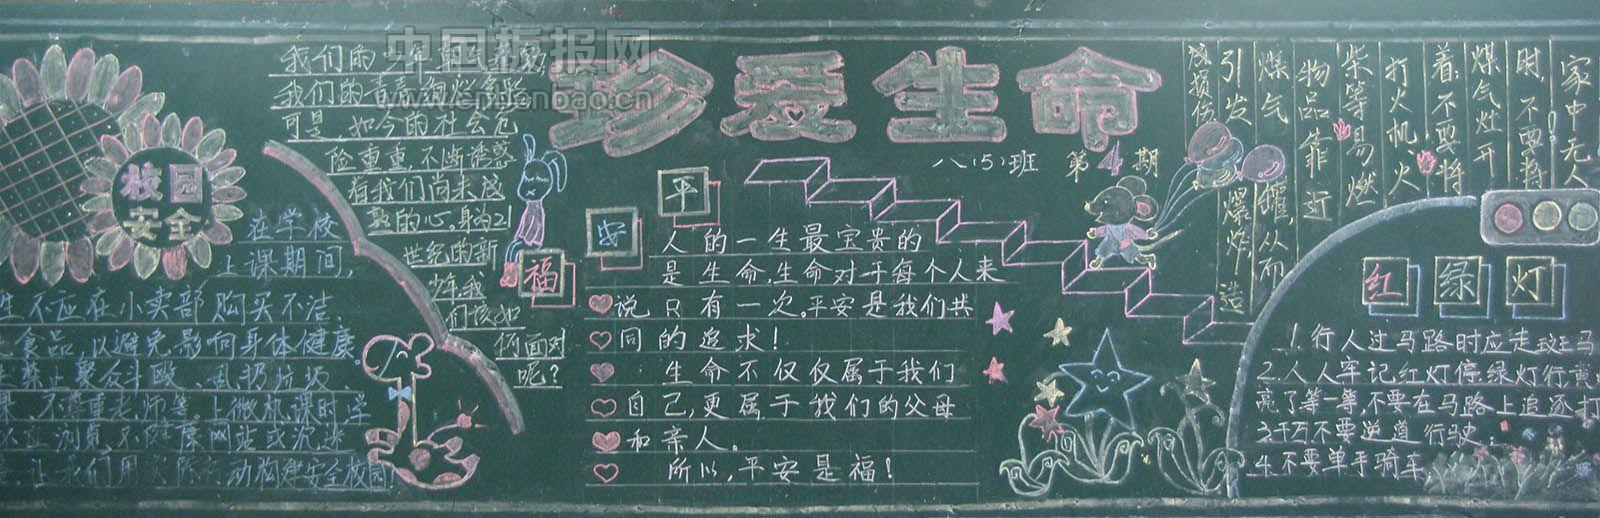 中国板报网
www.cnbanbao.cn
珍爱生命
八(5)班 第4期
校园
安全
在学校
上课期间,
生不应在小卖部购买不洁、
食品,以避免影响身体健康。
禁止聚众斗殴、乱扔垃圾、
不尊重老师等。上微机课时,学
浏览不健康网站或
让我们用实际行动构建安全校园
我们的少年
我们的青春
可是,如今的社会危
险重重,不断诱惑
着我们尚未成
熟的心。身为21
世纪的新
少年我
们该如
何面对
呢?
平
安
福
人的一生最宝贵的
是生命,生命对于每个人来
说只有一次。平安是我们共
同的追求!
生命不仅仅属于我们
自己,更属于我们的父母
和亲人。
所以,平安是福!
家中无人
时,不要将
煤气灶开
着;不要将
打火机火
柴等易燃
物品靠近
煤气罐,从而
引发爆炸,造
成损伤
红绿灯
1.行人过马路时应走斑马
2.人人牢记红灯停绿灯行黄
亮了等一等,不要在马路上追逐打
3.千万不要逆道行驶;
4.不要单手骑车